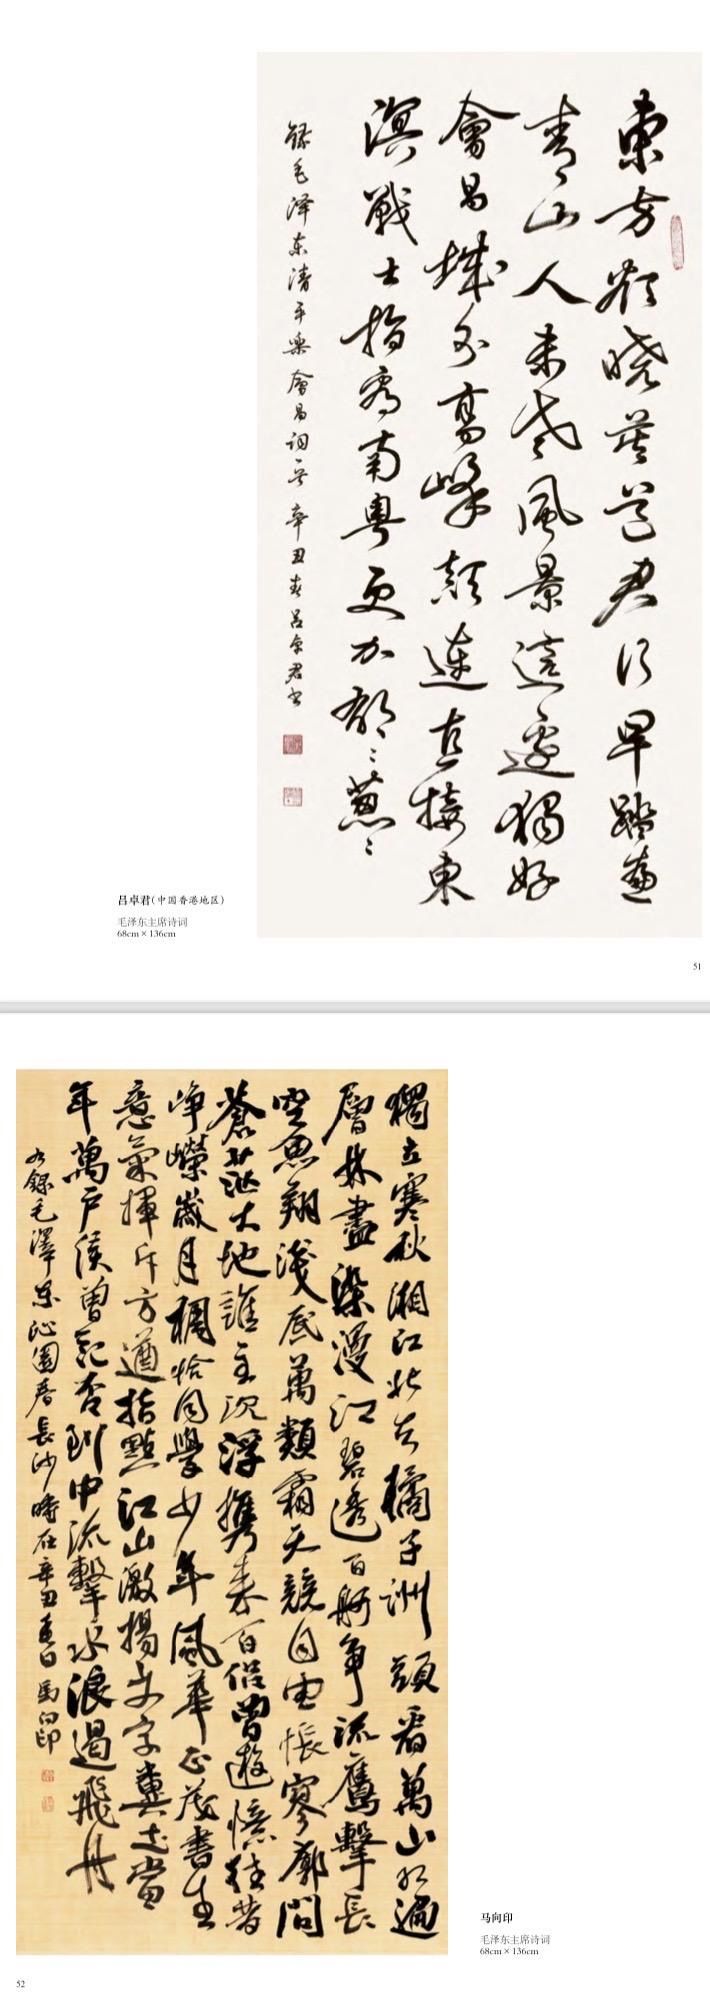 東方欲曉莫道君行早踏遍
青山人未老風景這邊獨好
會昌城外高峰顛連直接東
溟戰士指看南粤更加郁〻葱〻
錄毛泽东清平樂會昌词一首 辛丑春吕卓君书
吕卓君(中国香港地区)
毛泽东主席诗词
68cm×136cm
51
獨立寒秋湘江北去橘子洲頭看萬山紅遍
層林盡染漫江碧透百舸争流鷹擊長
空魚翔淺底萬類霜天競自由悵寥廓問
蒼茫大地誰主沉浮携来百侣曾遊憶往昔
崢嶸歲月稠恰同學少年風華正茂書生
意氣揮斥方遒指點江山激揚文字糞土當
年萬户侯曾記否到中流擊水浪遏飛舟
右錄毛澤东沁園春長沙時在辛丑春日馬向印
马向印
毛泽东主席诗词
68cm×136cm
52